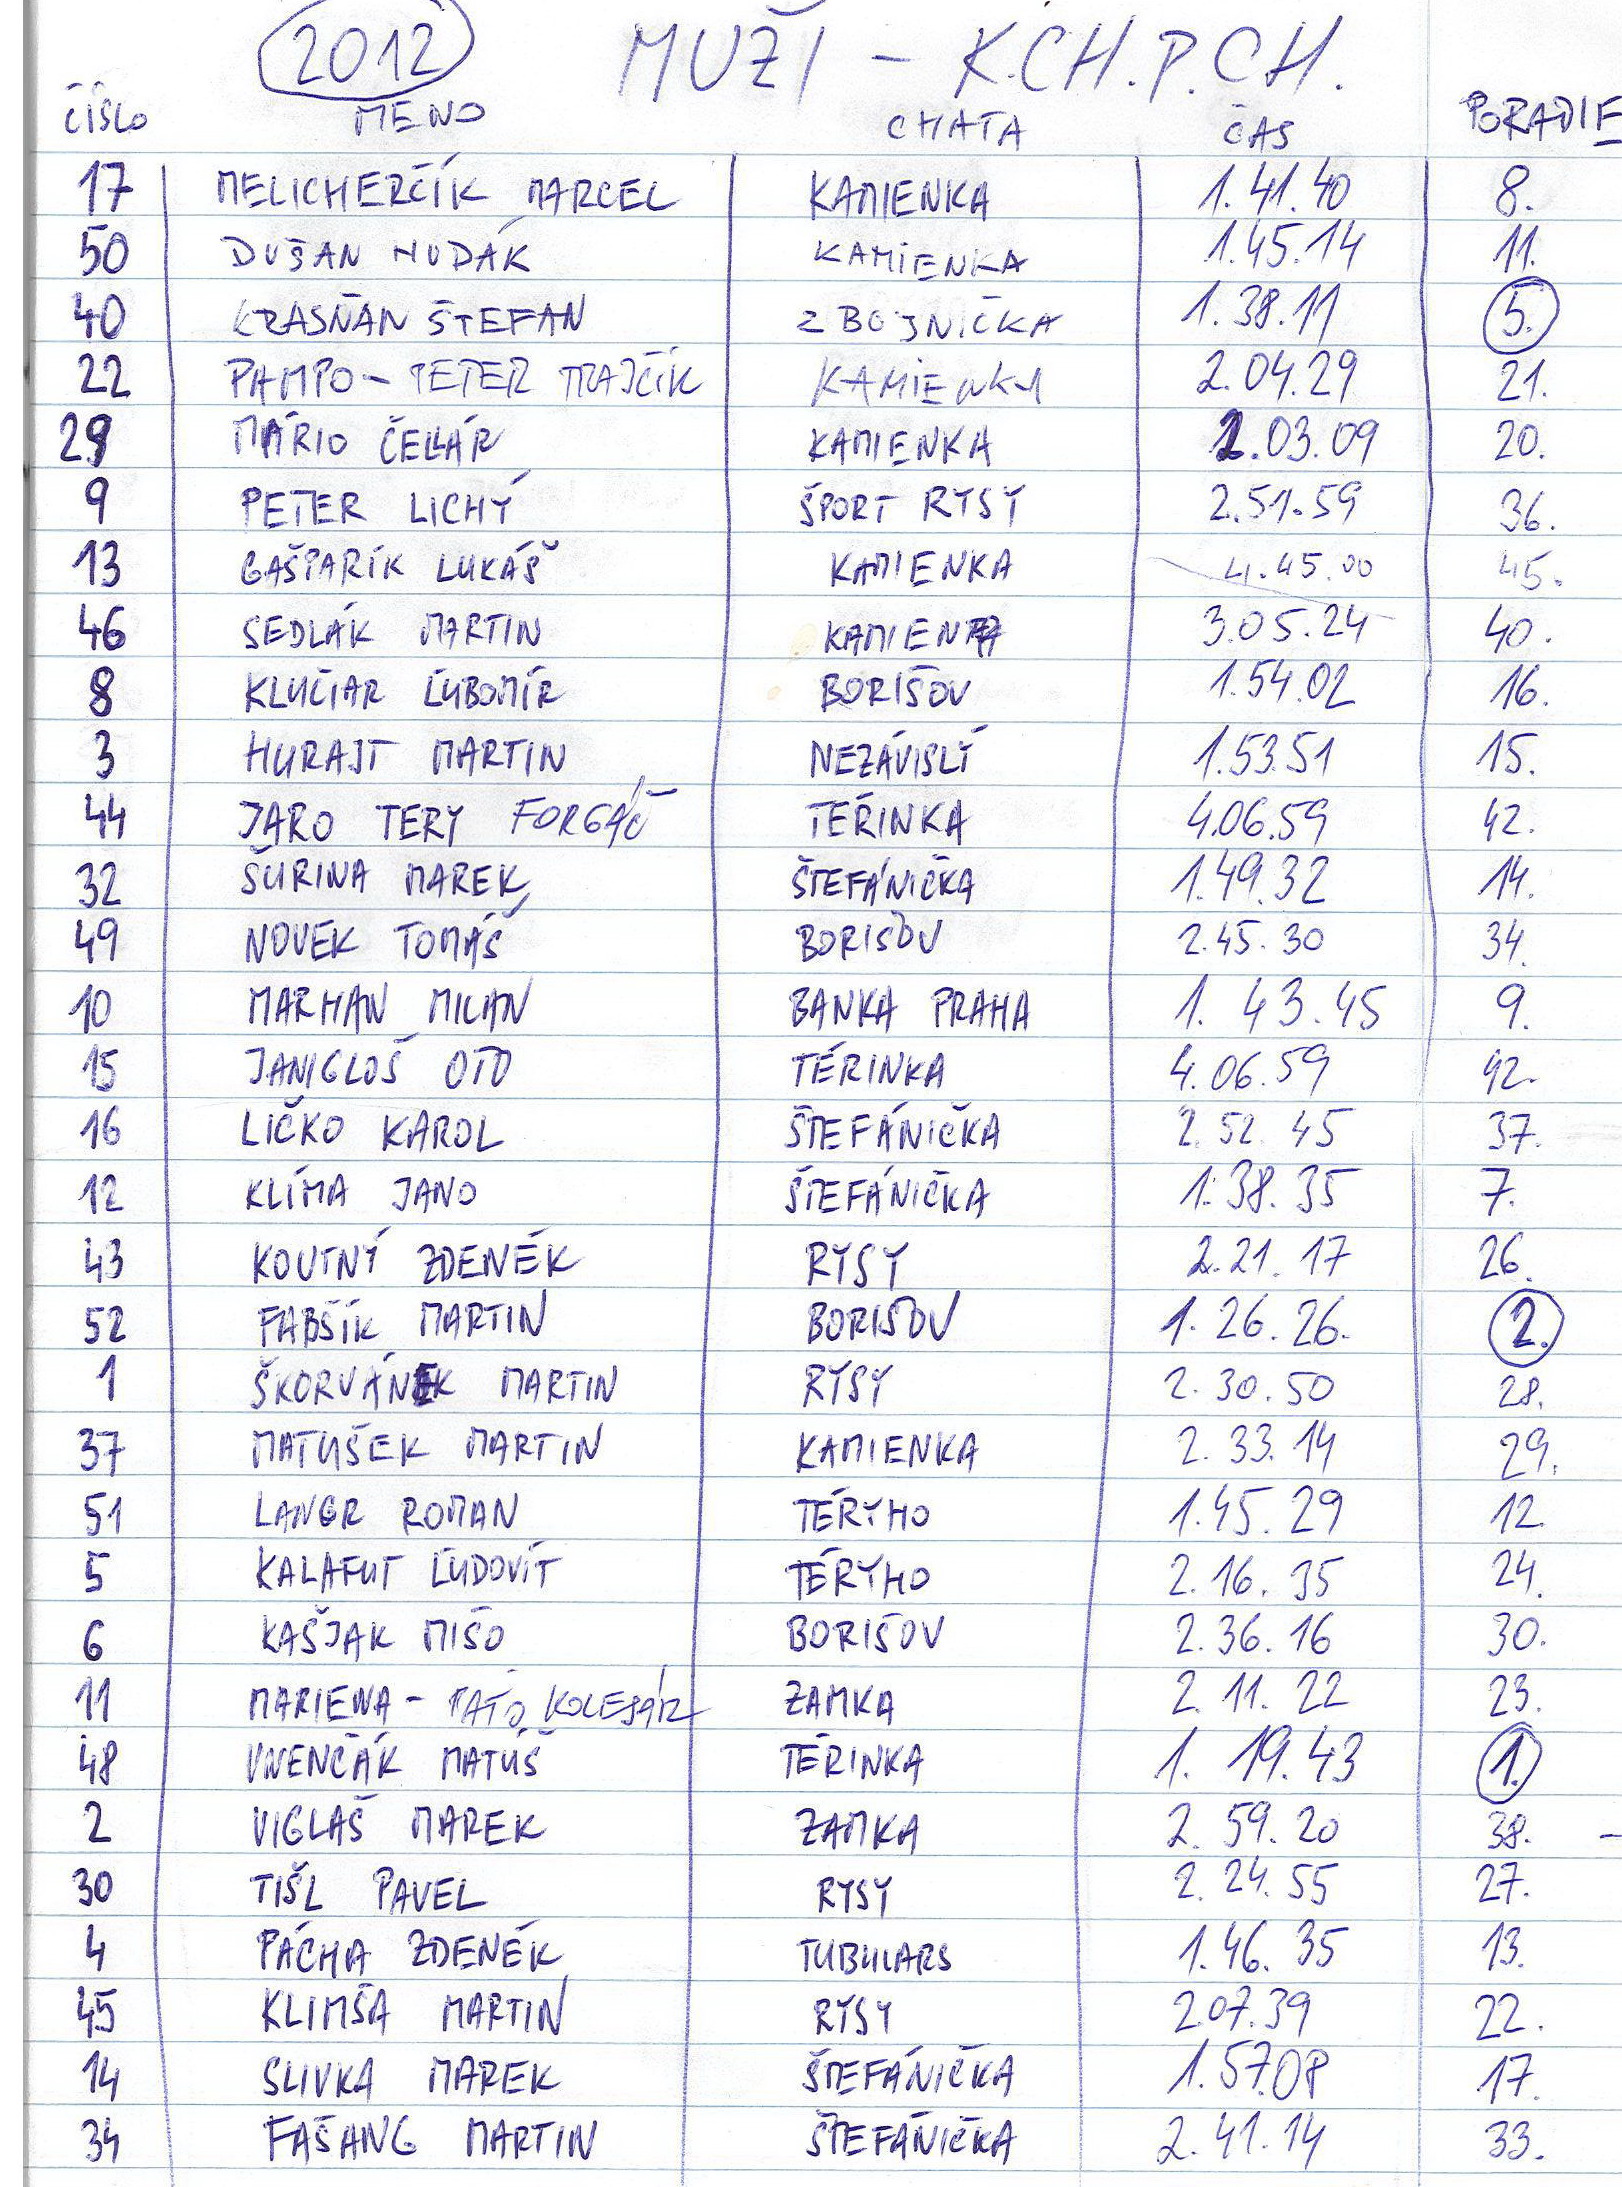 2012 MUŽI - K.CH.P.CH.
ČÍSLO MENO CHATA ČAS PORADIE
17 MELICHERČÍK MARCEL KAMIENKA 1.41.40 8.
50 DUŠAN HUDÁK KAMIENKA 1.45.14 11.
40 KRASŇAN ŠTEFAN ZBOJNÍČKA 1.38.11 5.
22 PAMPO - PETER TRAJČÍK KAMIENKA 2.04.29 21.
29 MÁRIO ČELLÁR KAMIENKA 2.03.09 20.
9 PETER LICHÝ ŠPORT RYSY 2.51.59 36.
13 GAŠPARÍK LUKÁŠ KAMIENKA 4.45.00 45.
46 SEDLÁK MARTIN KAMIENKA 3.05.24 40.
8 KLUČIAR ĽUBOMÍR BORIŠOV 1.54.02 16.
3 HURAJT MARTIN NEZÁVISLÝ 1.53.51 15.
44 JARO TERY FORGÁČ TÉRINKA 4.06.59 42.
32 ŠURINA MAREK ŠTEFÁNIČKA 1.49.32 14.
49 NOVEK TOMÁŠ BORIŠOV 2.45.30 34.
10 MARHAN MILAN BANKA PRAHA 1.43.45 9.
15 JANIGLOŠ OTO TÉRINKA 4.06.59 42.
16 LIČKO KAROL ŠTEFÁNIČKA 2.52.45 37.
12 KLÍMA JANO ŠTEFÁNIČKA 1.38.35 7.
43 KOUTNÝ ZDENĚK RYSY 2.21.17 26.
52 FABŠÍK MARTIN BORIŠOV 1.26.26. 2.
1 ŠKORVÁNEK MARTIN RYSY 2.30.50 28.
37 MATUŠEK MARTIN KAMIENKA 2.33.14 29.
51 LANGR ROMAN TÉRYHO 1.45.29 12.
5 KALAFUT ĽUDOVÍT TÉRYHO 2.16.35 24.
6 KAŠJAK MIŠO BORIŠOV 2.36.16 30.
11 MARIENA - KOLESÁR ZAMKA 2.11.22 23.
48 VNENČÁK MATÚŠ TÉRINKA 1.19.43 1.
2 VIGLAŠ MAREK ZAMKA 2.59.20 38. -
30 TIŠL PAVEL RYSY 2.24.55 27.
4 PÁCHA ZDENĚK TUBULARS 1.46.35 13.
45 KLIMŠA MARTIN RYSY 2.07.39 22.
14 SLIVKA MAREK ŠTEFÁNIČKA 1.57.08 17.
34 FAŠANG MARTIN ŠTEFÁNIČKA 2.41.14 33.